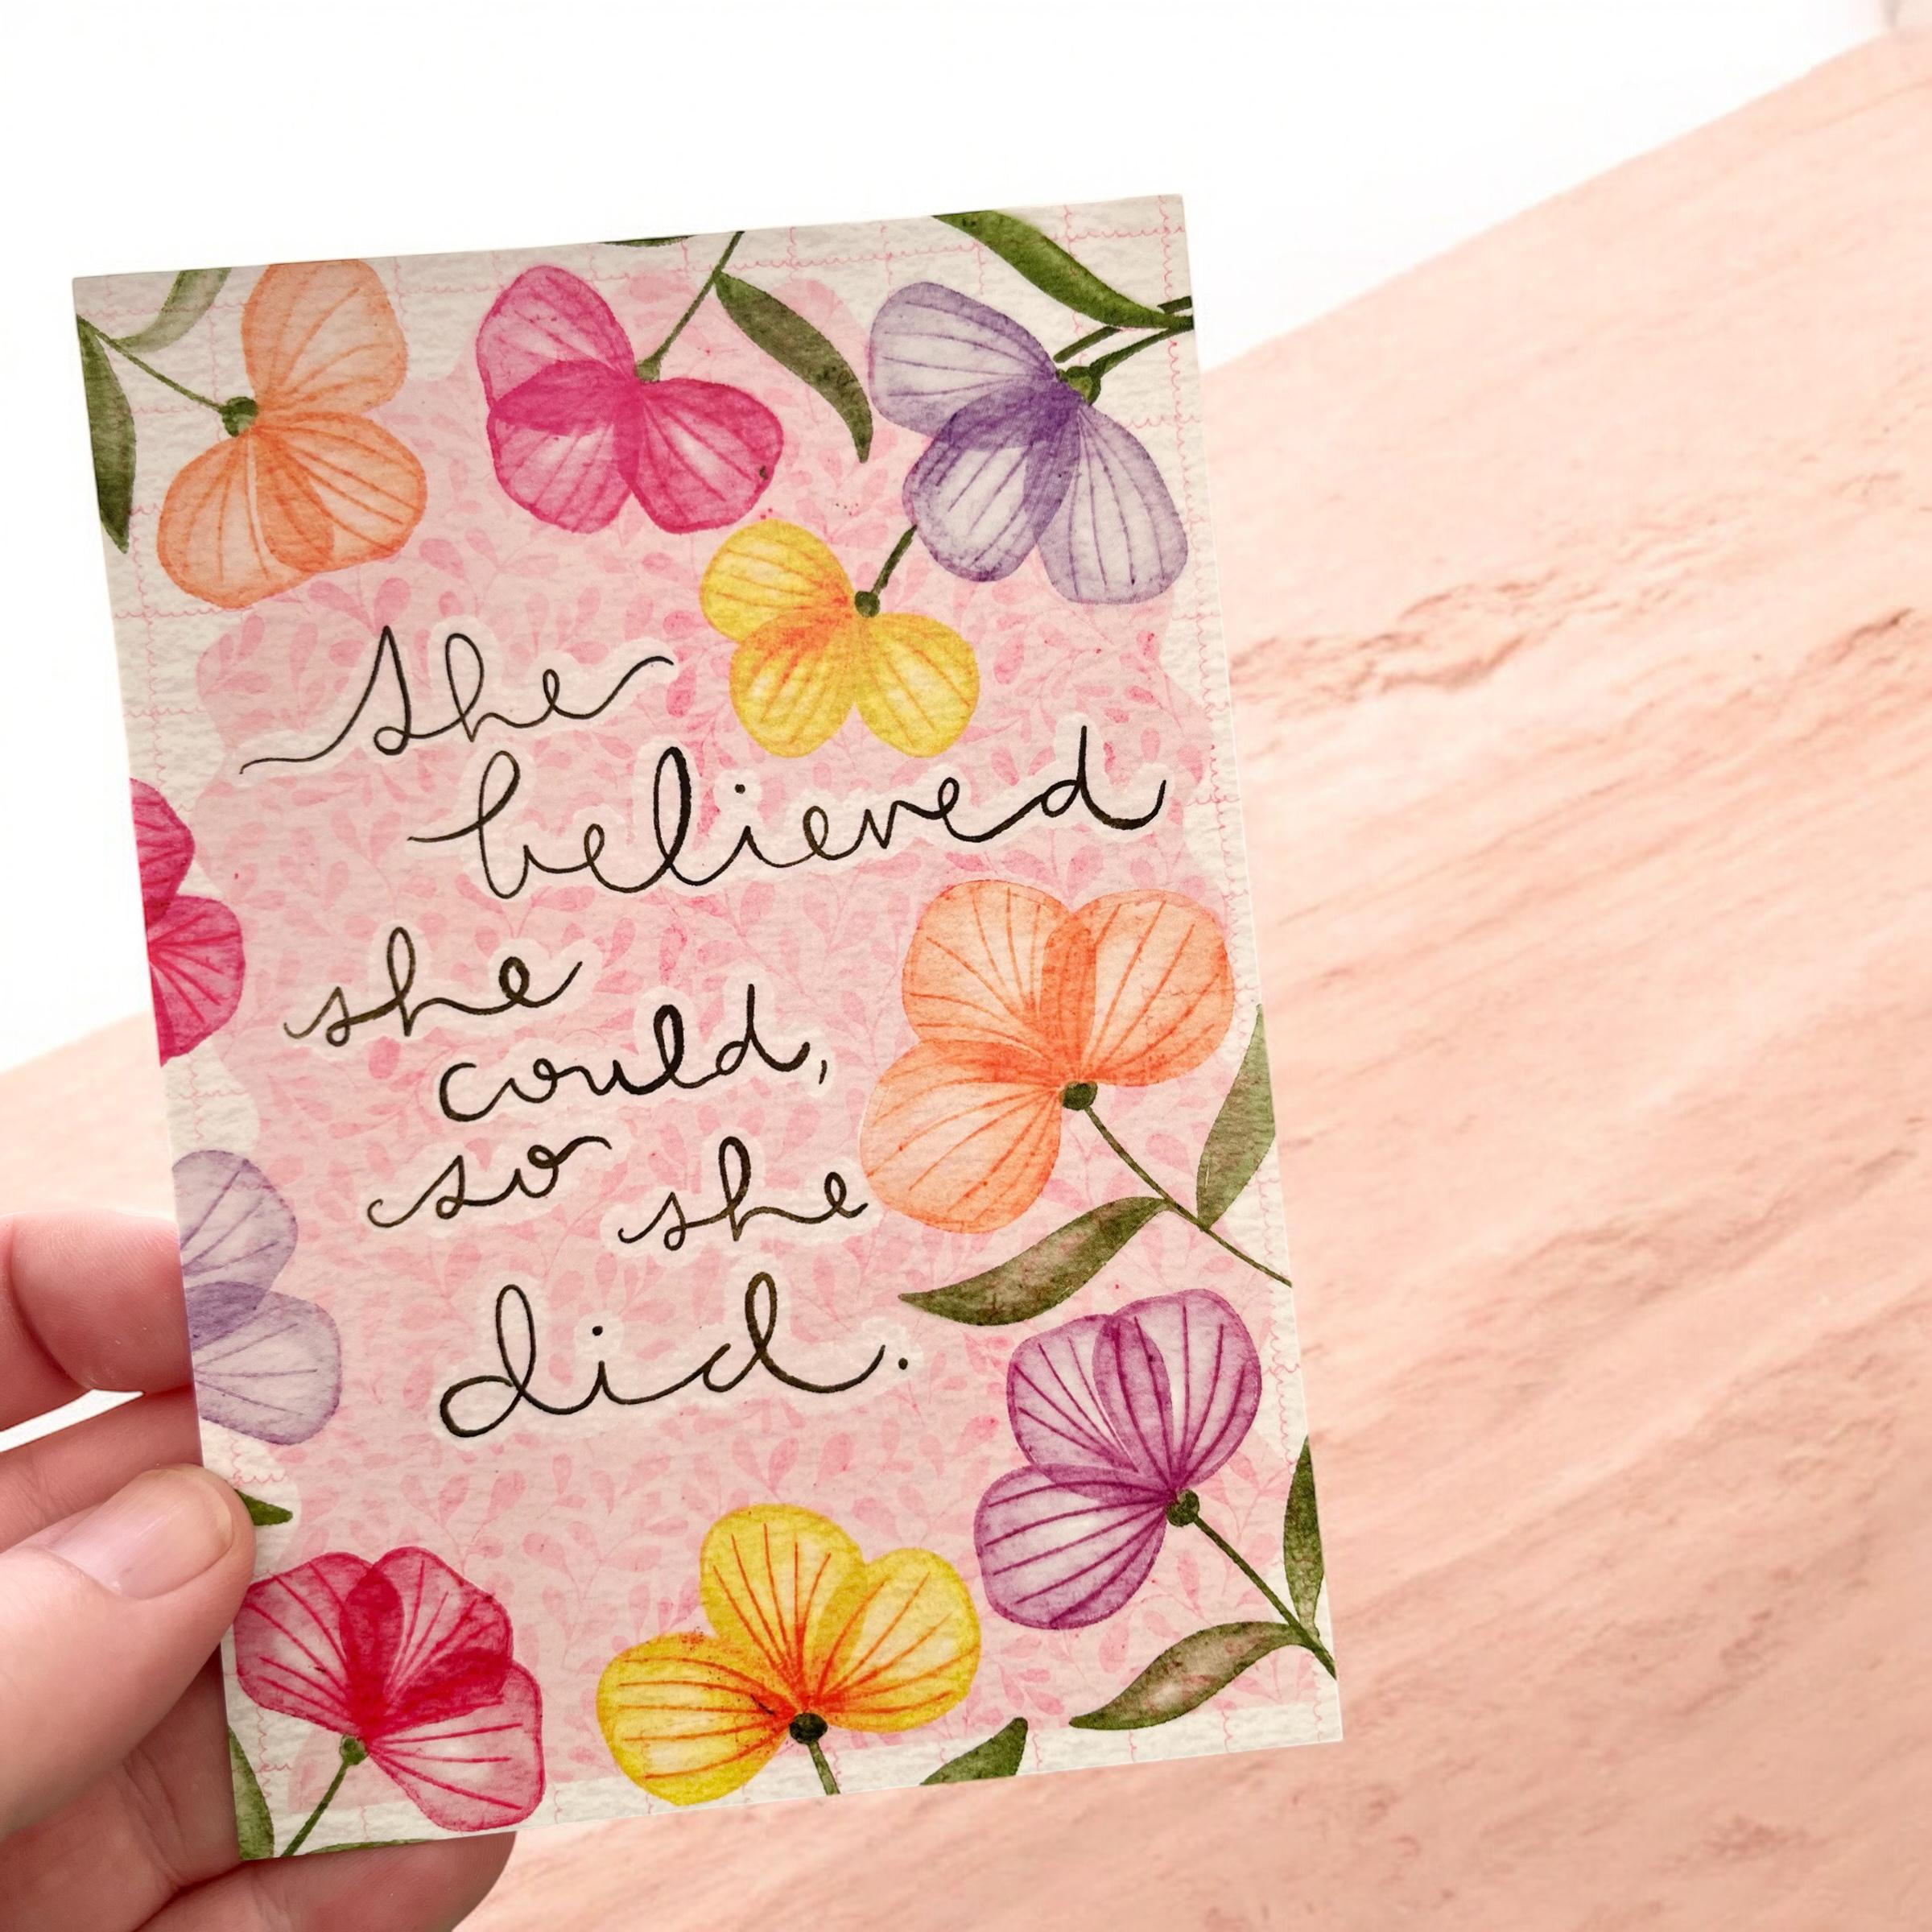 she
believed
she
could,
so she
did.